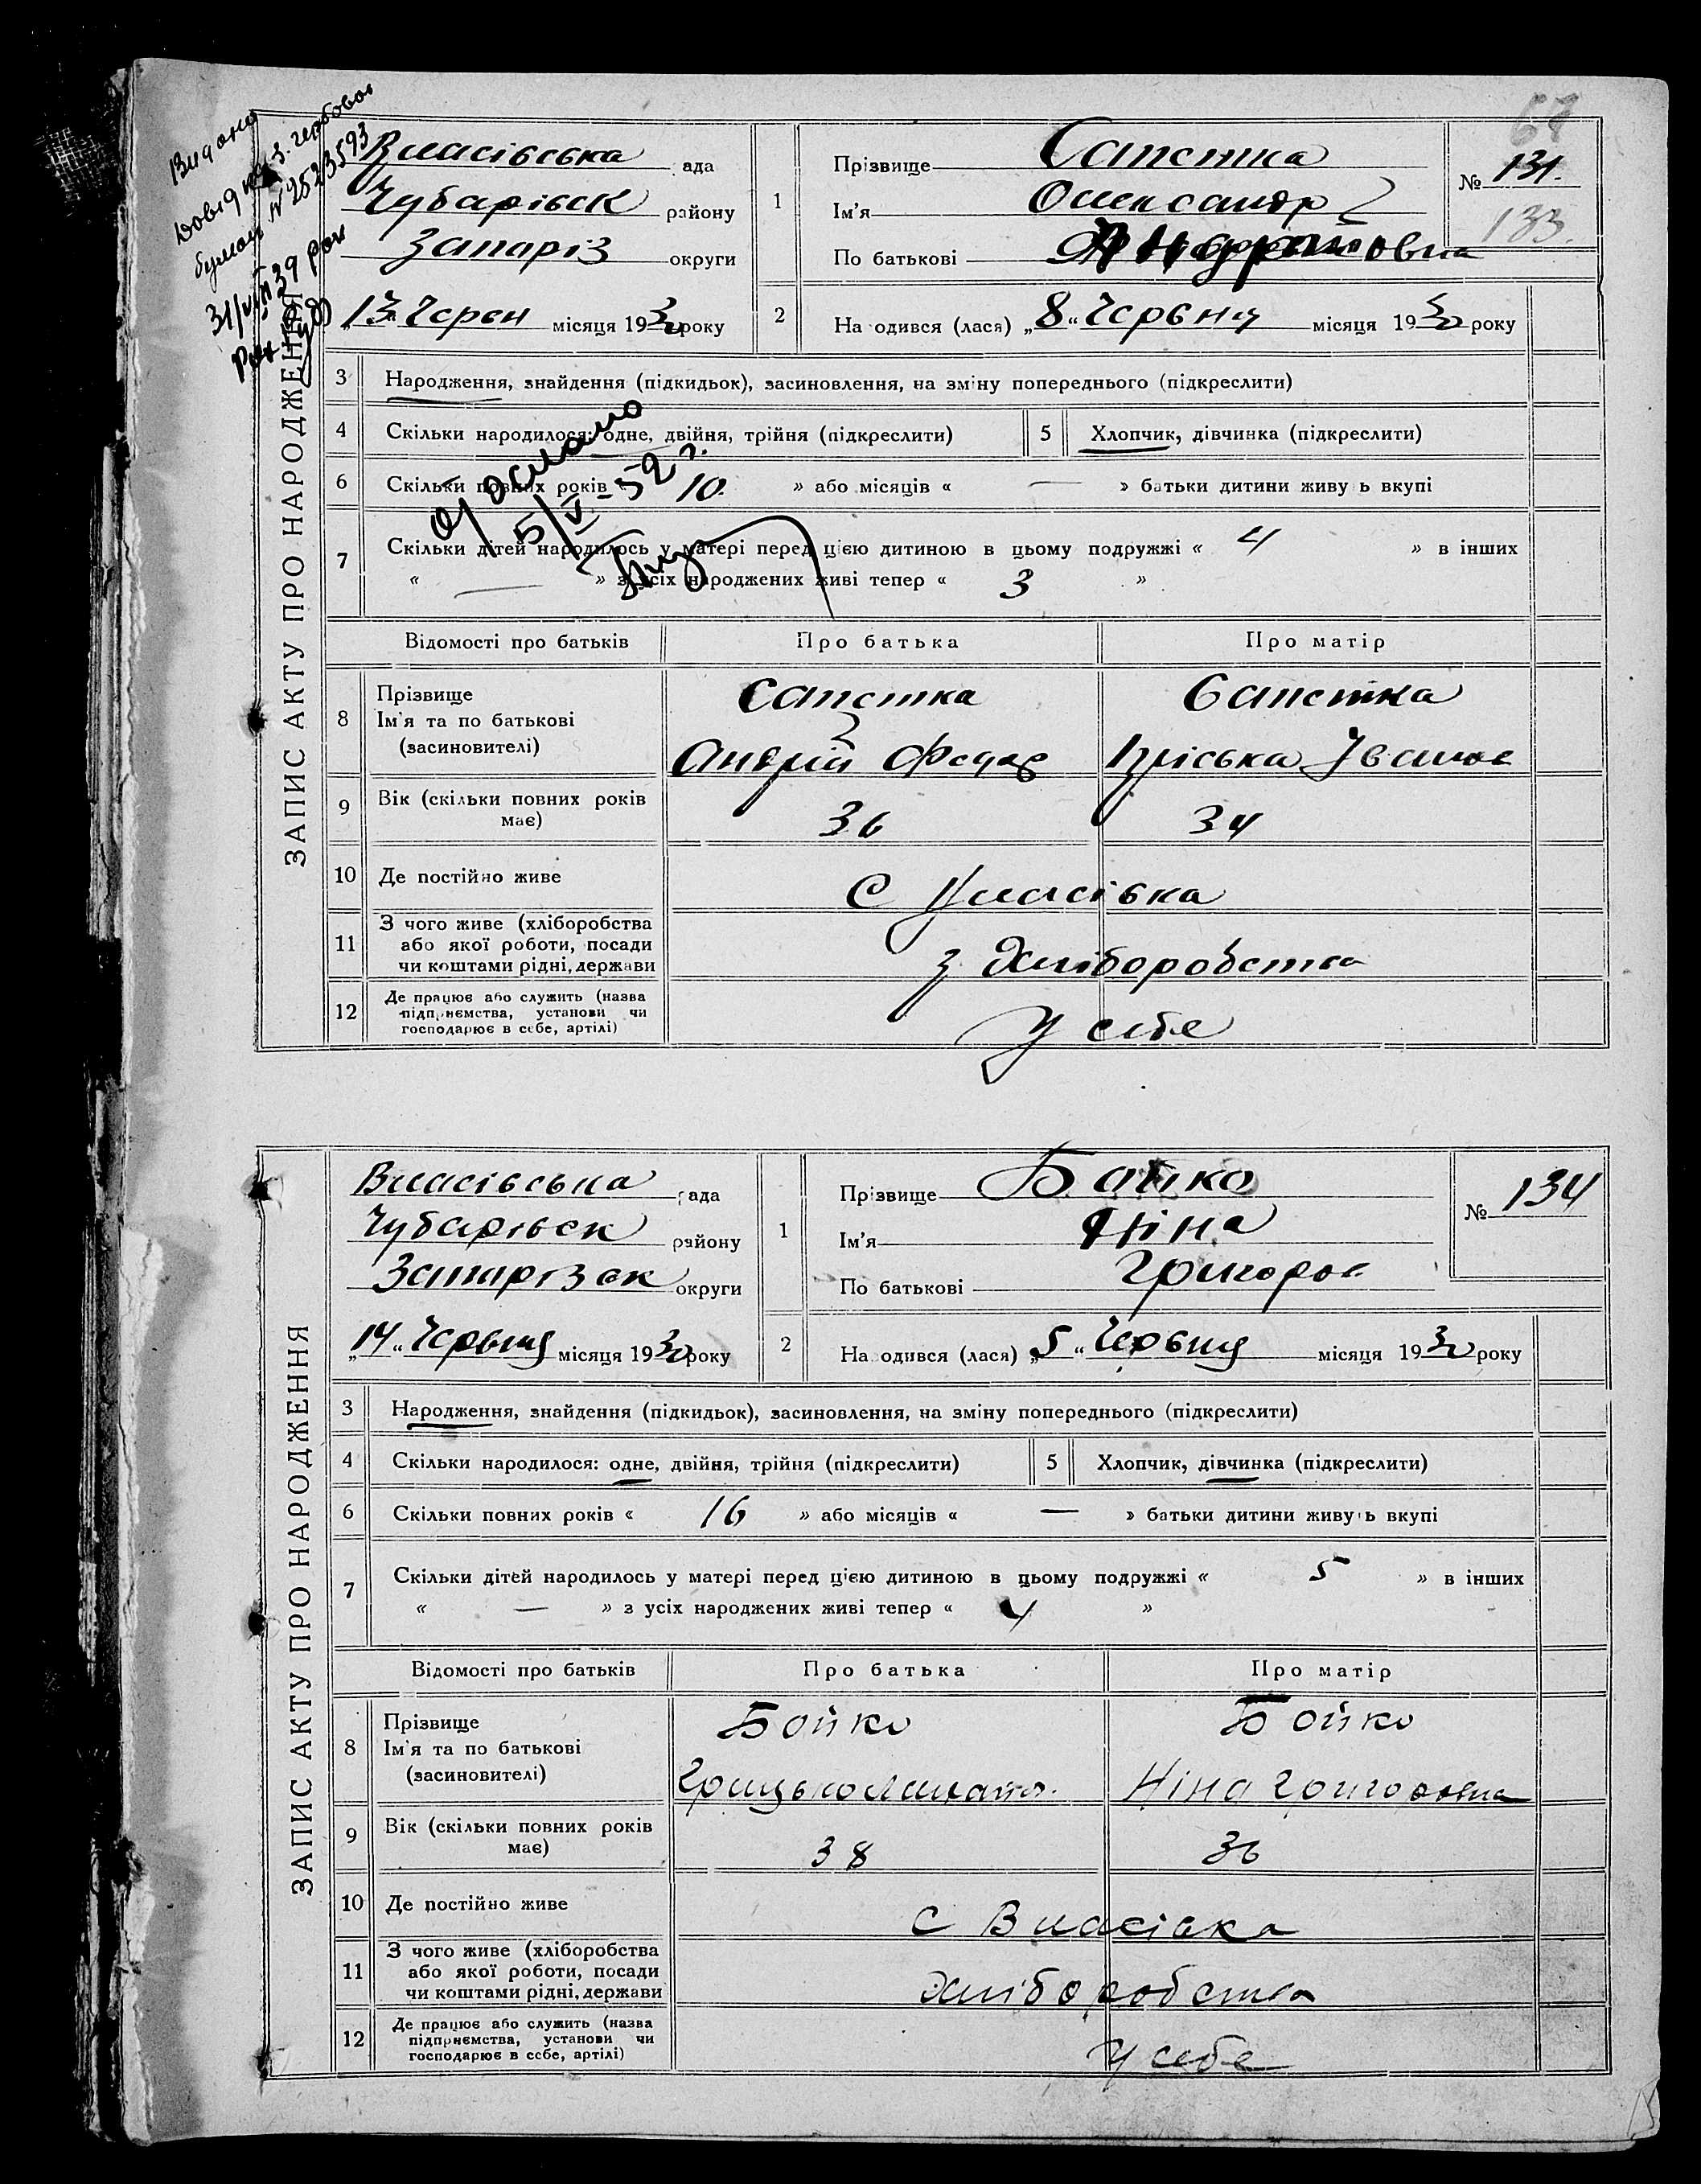 68
Видано
Довідку
31/VIII 39 р.
ЗАПИС АКТУ ПРО НАРОДЖЕННЯ
Власівська рада
Чубарівськ району
Запоріз округи
„13“ Черен місяця 1930 року
1 Прізвище Сапетка
Ім'я Олександр
По батькові
№ 131.
133.
2 Народився (лася) „8“ Червня місяця 1930 року
3 Народження, знайдення (підкидьок), засиновлення, на зміну попереднього (підкреслити)
4 Скільки народилося: одне, двійня, трійня (підкреслити)
5 Хлопчик, дівчинка (підкреслити)
6 Скільки повних років « 10 » або місяців « — » батьки дитини живуть вкупі
5/VI-52 г.
7 Скільки дітей народилось у матері перед цією дитиною в цьому подружжі « 4 » в інших
« — » з усіх народжених живі тепер « 3 »
Відомості про батьків Про батька Про матір
8 Прізвище
Ім'я та по батькові
(засиновителі)
Сапетка
Андрій Федор
Сапетка
Пріська Іванов
9 Вік (скільки повних років
має)
36 34
10 Де постійно живе
С Власівка
11 З чого живе (хліборобства
або якої роботи, посади
чи коштами рідні, держави
з Хліборобства
12 Де працює або служить (назва
підприємства, установи чи
господарює в себе, артілі)
У себе
ЗАПИС АКТУ ПРО НАРОДЖЕННЯ
Власівська рада
Чубарівск району
Запорізск округи
„14“ Червня місяця 1930 року
1 Прізвище Бойко
Ім'я Ніна
По батькові Григоров
№ 134
2 Народився (лася) „5“ Червня місяця 1930 року
3 Народження, знайдення (підкидьок), засиновлення, на зміну попереднього (підкреслити)
4 Скільки народилося: одне, двійня, трійня (підкреслити)
5 Хлопчик, дівчинка (підкреслити)
6 Скільки повних років « 16 » або місяців « — » батьки дитини живуть вкупі
7 Скільки дітей народилось у матері перед цією дитиною в цьому подружжі « 5 » в інших
« — » з усіх народжених живі тепер « 4 »
Відомості про батьків Про батька Про матір
8 Прізвище
Ім'я та по батькові
(засиновителі)
Бойко
Грицько
Бойко
Ніна Григоровна
9 Вік (скільки повних років
має)
38 36
10 Де постійно живе
С Власівка
11 З чого живе (хліборобства
або якої роботи, посади
чи коштами рідні, держави
Хліборобства
12 Де працює або служить (назва
підприємства, установи чи
господарює в себе, артілі)
У себе